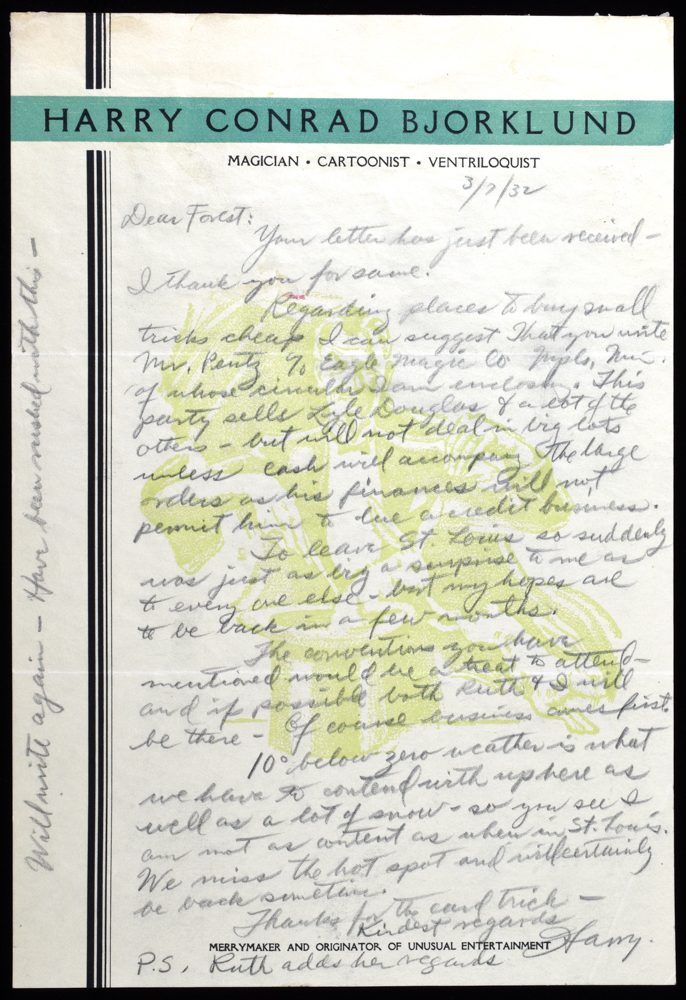 HARRY CONRAD BJORKLUND
MAGICIAN • CARTOONIST • VENTRILOQUIST
3/7/32
Dear Forest:
Your letter has just been received –
I thank you for same.
Regarding places to buy small
tricks cheap I can suggest that you write
Mr. Pentz % Eagle Magic Co Mpls, Min.
of whose circular I am enclosing. This
party sells Lyle Douglas & a lot of the
others – but will not deal in big lots
unless cash will accompany the large
orders as his finances will not
permit him to do a credit business.
To leave St. Louis so suddenly
was just as big a surprise to me as
to every one else – but my hopes are
to be back in a few months.
The conventions you have
mentioned would be a treat to attend –
and if possible both Ruth & I will
be there – Of course business comes first.
10° below zero weather is what
we have to contend with up here as
well as a lot of snow – so you see I
am not as content as when in St. Louis.
We miss the hot spot and will certainly
be back sometime.
Thanks for the card trick –
Kindest regards
Harry.
MERRYMAKER AND ORIGINATOR OF UNUSUAL ENTERTAINMENT
P.S. Ruth adds her regards
Will write again – Have been rushed with this –